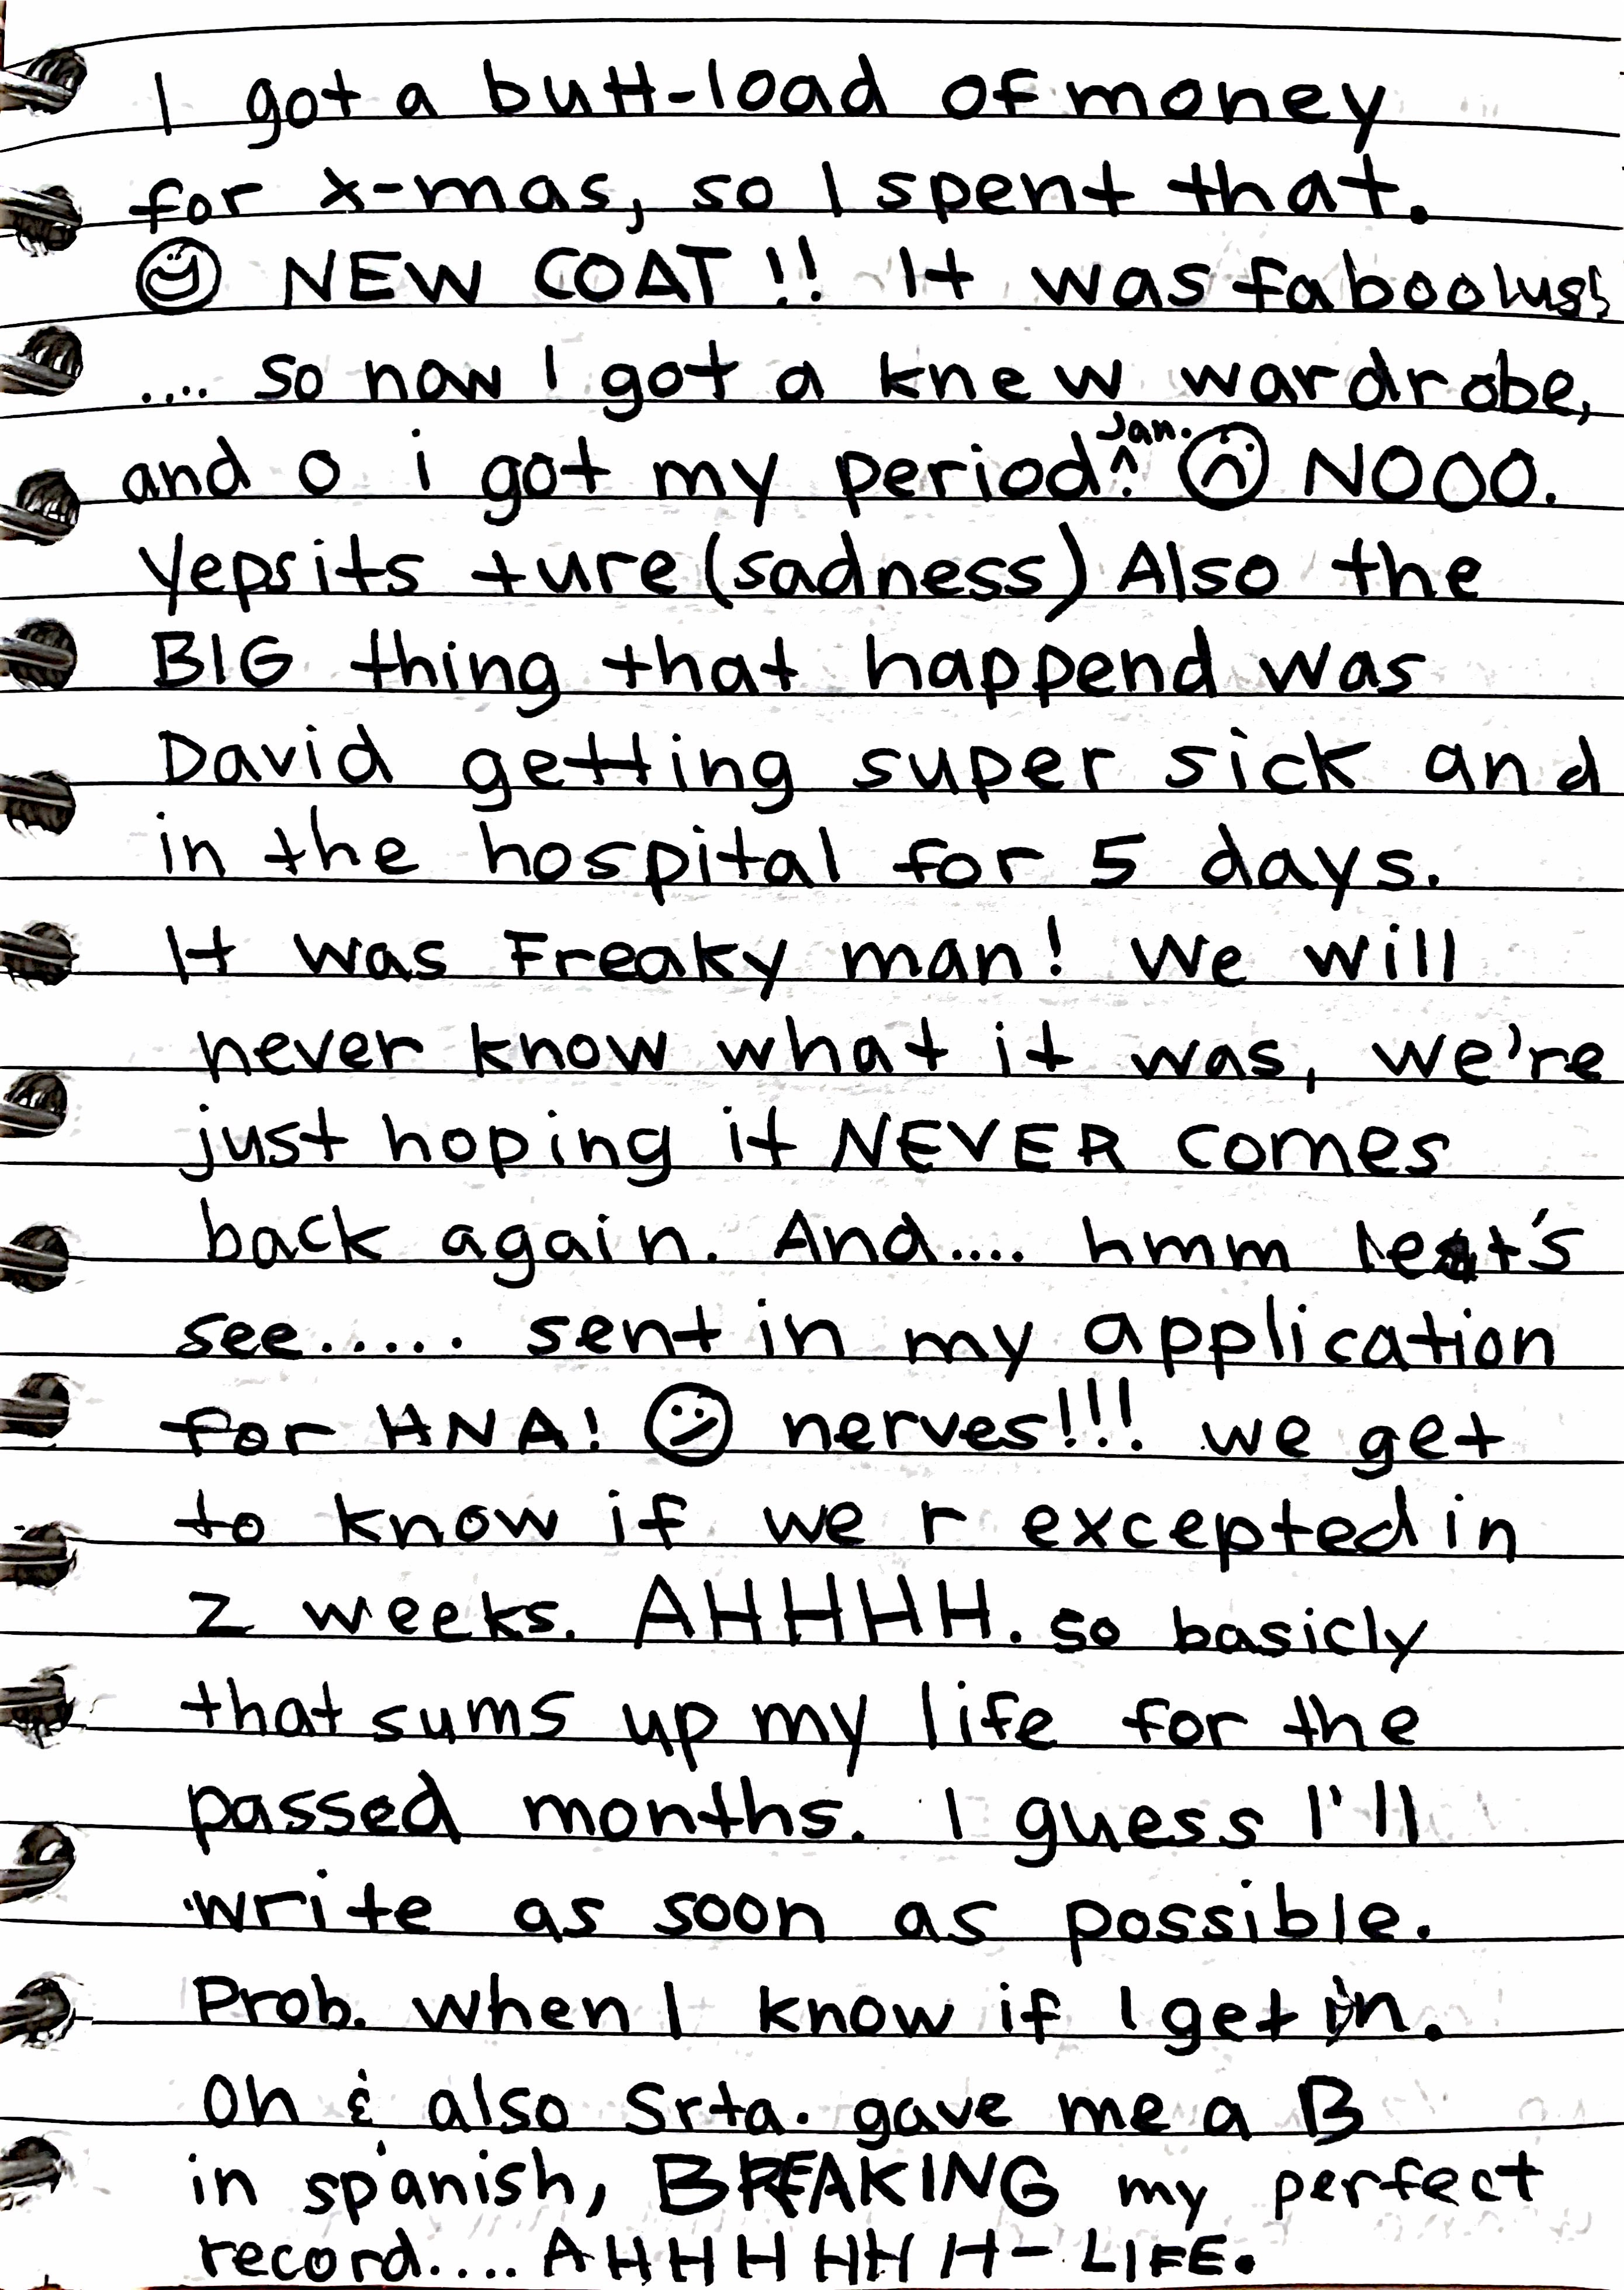 I got a butt-load of money
for x-mas, so I spent that.
☺ NEW COAT!! It was faboolus!
.... so now I got a knew wardrobe,
and o i got my period ^Jan. ! ☹ NOOO.
Yepsits ture (sadness) Also the
BIG thing that happend was
David getting super sick and
in the hospital for 5 days.
It was Freaky man! We will
never know what it was, we're
just hoping it NEVER comes
back again. And.... hmm let's
see..... sent in my application
for HNA! 🫤 nerves!!! we get
to know if we r excepted in
2 weeks. AHHHHH. so basicly
that sums up my life for the
passed months. I guess I'll
write as soon as possible.
Prob. when I know if I get in.
Oh & also Srta. gave me a B
in spanish, BREAKING my perfect
record.... AHHHHHHH- LIFE.